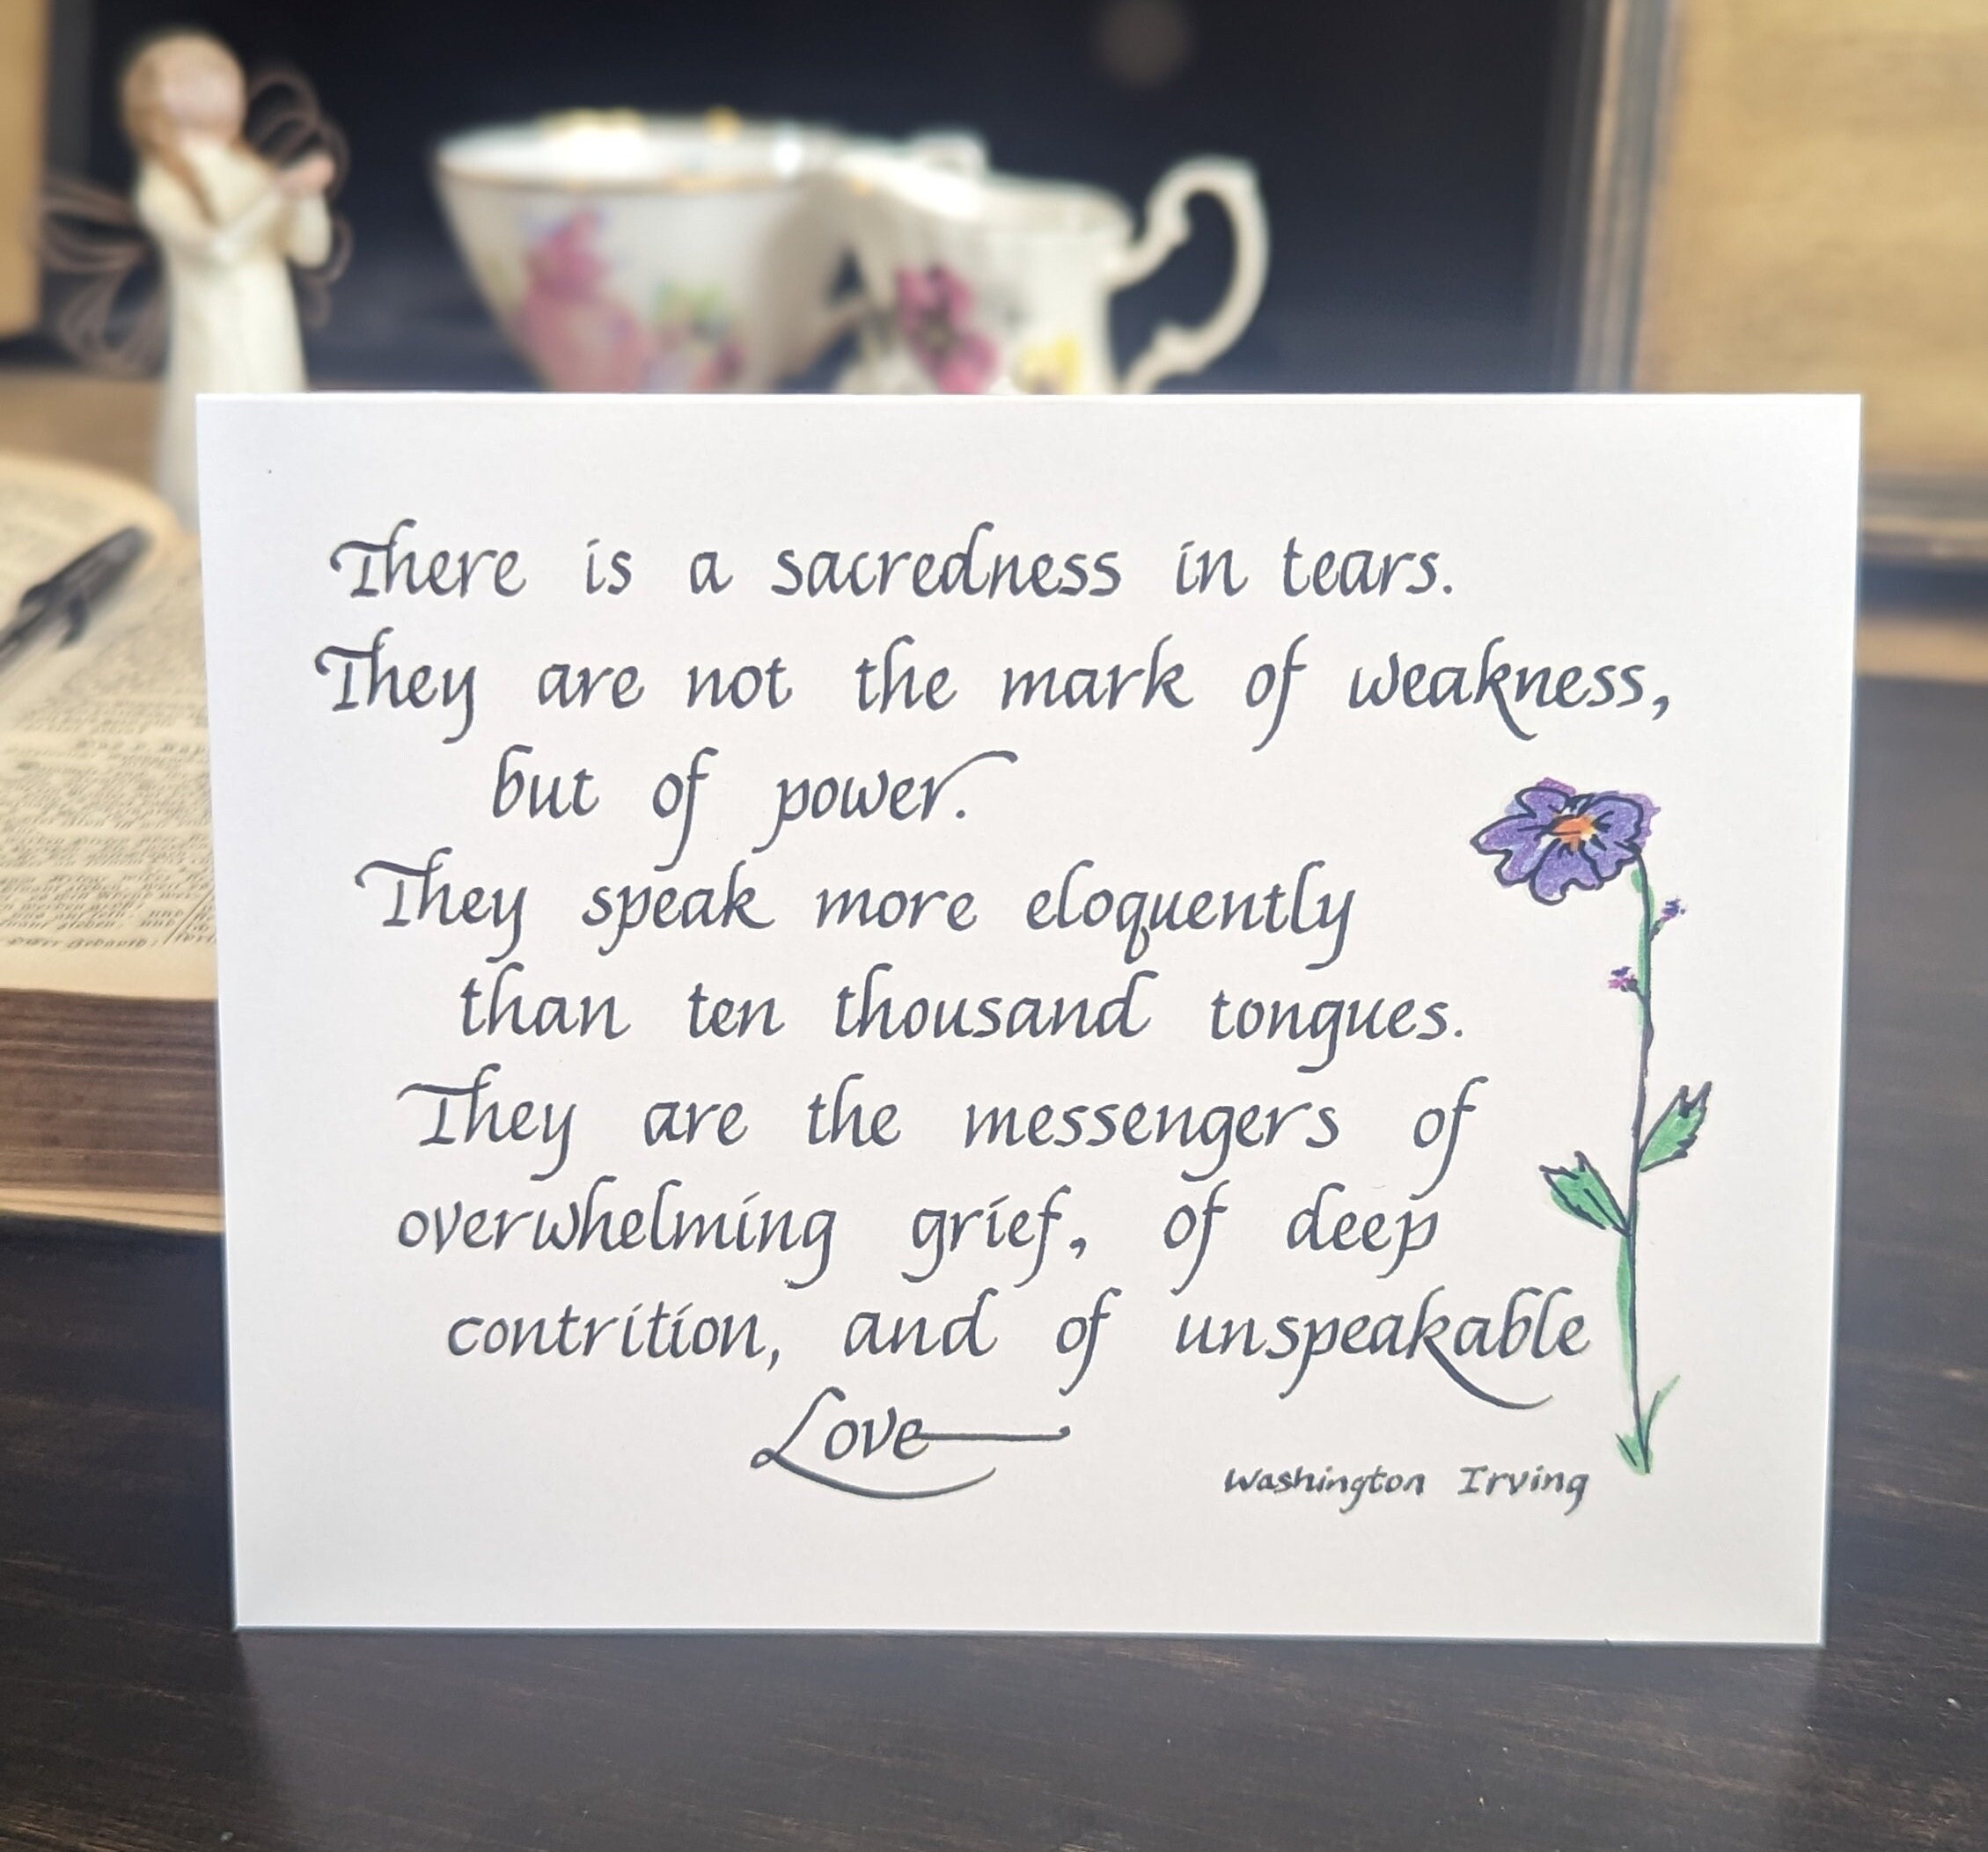 There is a sacredness in tears.
They are not the mark of weakness,
but of power.
They speak more eloquently
than ten thousand tongues.
They are the messengers of
overwhelming grief, of deep
contrition, and of unspeakable
Love
Washington Irving